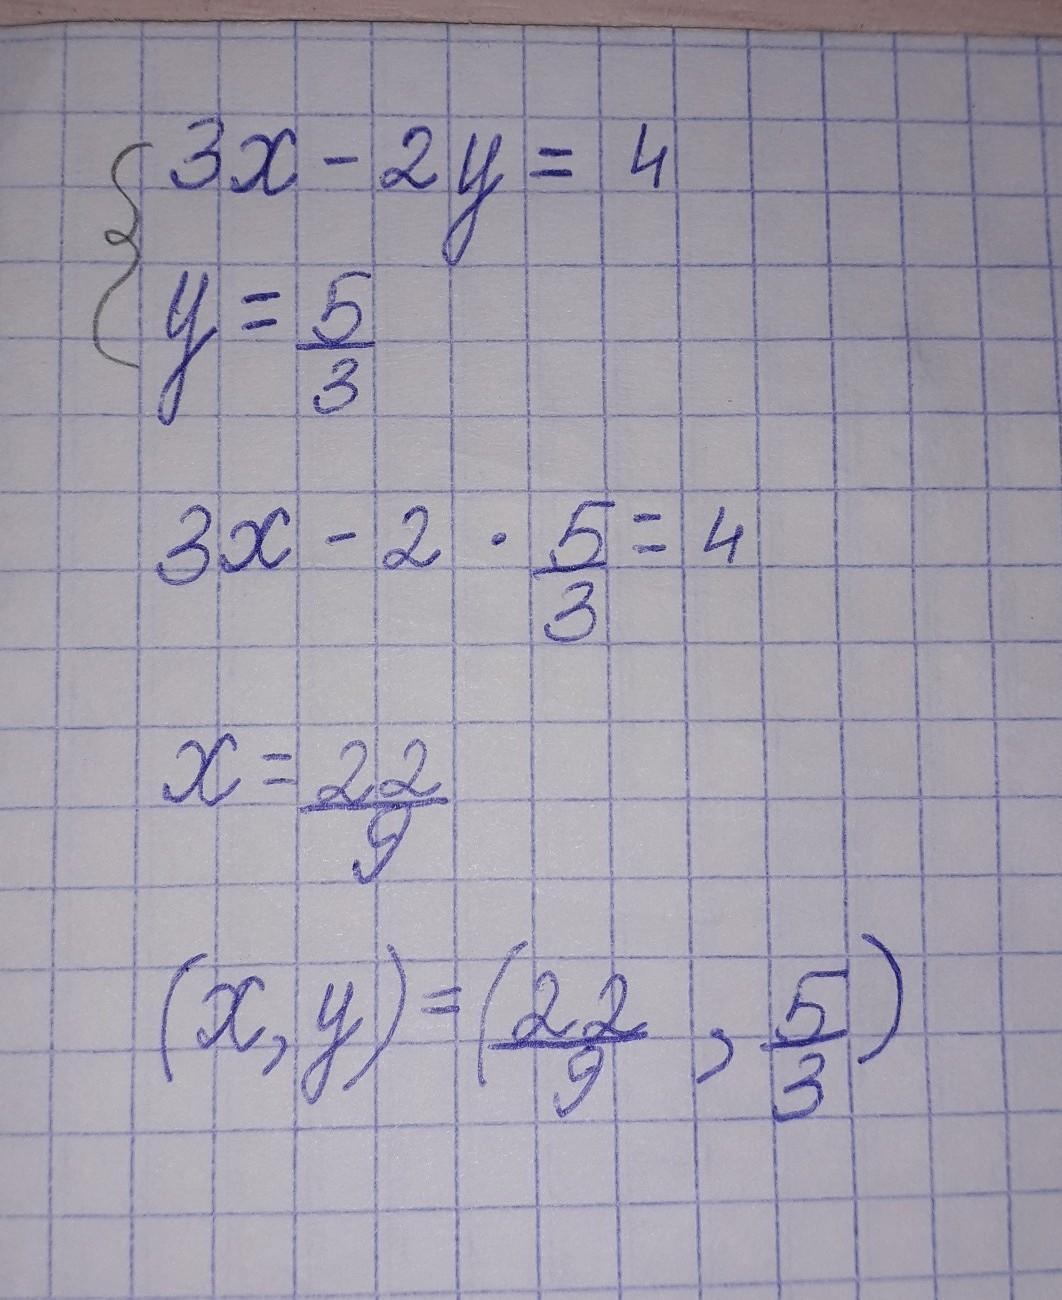 { 3x - 2y = 4
y = 5/3
3x - 2 · 5/3 = 4
x = 22/9
(x, y) = (22/9 , 5/3)